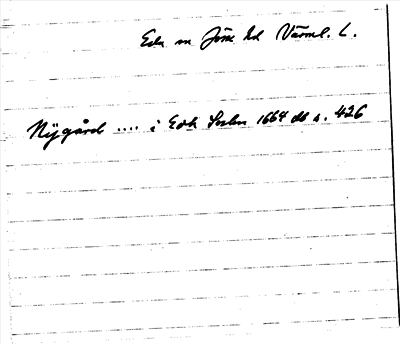 Eda sn Jösse hd Värml. L.
Nygård .... i Eda Sochn 1664 db s. 426